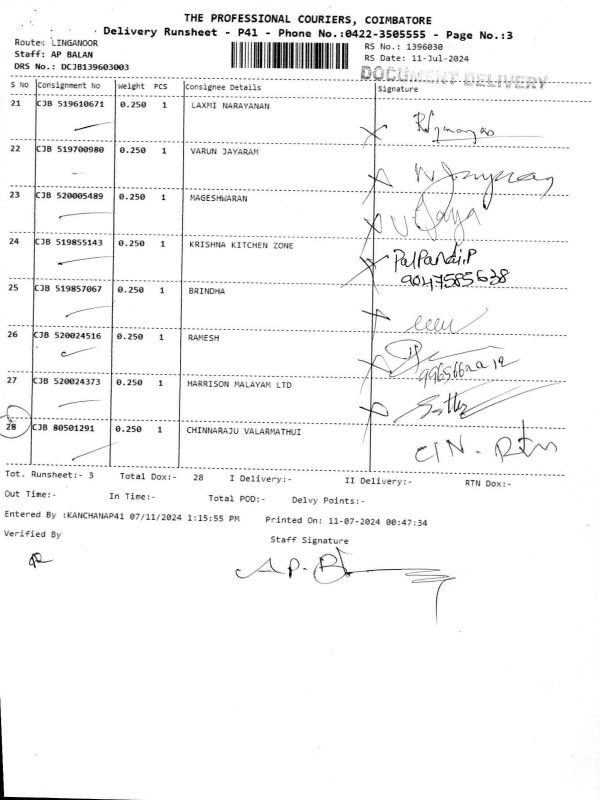 THE PROFESSIONAL COURIERS, COIMBATORE
Delivery Runsheet - P41 - Phone No.:0422-3505555 - Page No.:3
Route: LINGANOOR
RS No.: 1396030
Staff: AP BALAN
RS Date: 11-Jul-2024
DRS No.: DCJB139603003
DOCUMENT DELIVERY
S No Consignment No Weight PCS Consignee Details Signature
21 CJB 519610671 0.250 1 LAXMI NARAYANAN
22 CJB 519700980 0.250 1 VARUN JAYARAM
23 CJB 520005489 0.250 1 MAGESHWARAN
24 CJB 519855143 0.250 1 KRISHNA KITCHEN ZONE PalPandi.P
9047585638
25 CJB 519857067 0.250 1 BRINDHA
26 CJB 520024516 0.250 1 RAMESH
27 CJB 520024373 0.250 1 HARRISON MALAYAM LTD
28 CJB 80501291 0.250 1 CHINNARAJU VALARMATHUI
Tot. Runsheet:- 3 Total Dox:- 28 I Delivery:- II Delivery:- RTN Dox:-
Out Time:- In Time:- Total POD:- Delvy Points:-
Entered By :KANCHANAP41 07/11/2024 1:15:55 PM Printed On: 11-07-2024 00:47:34
Verified By Staff Signature